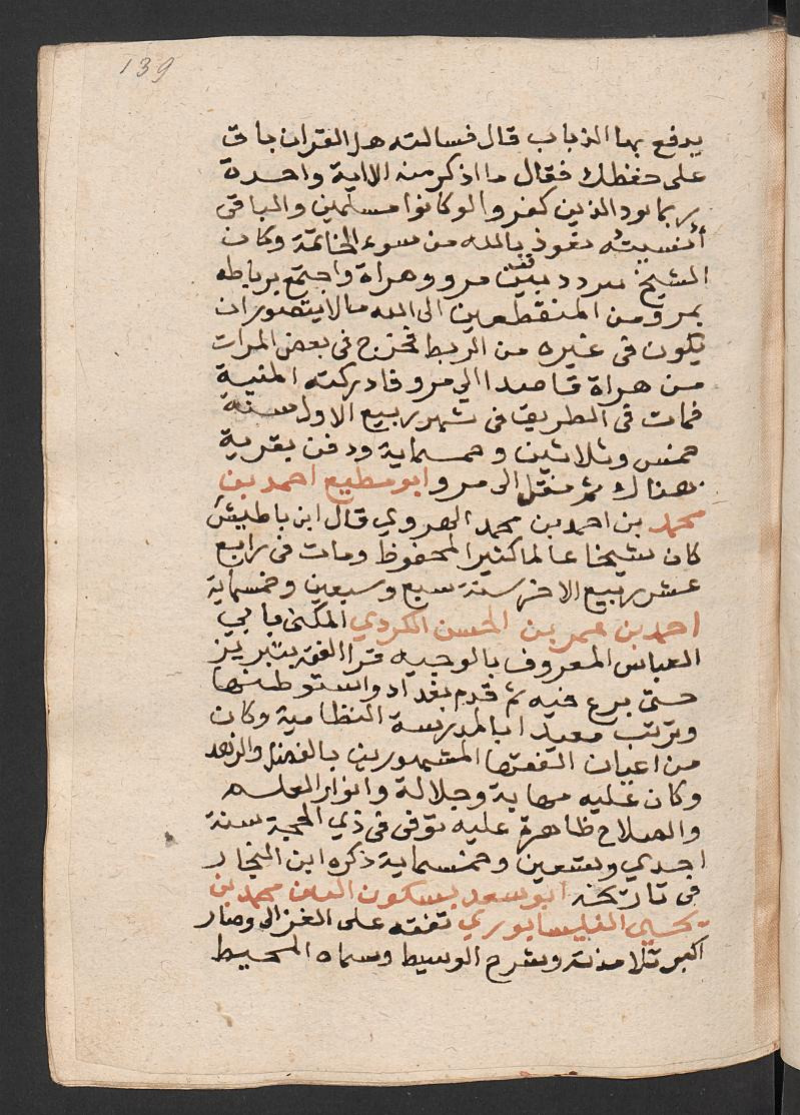 139
يدفع بها الذباب قال فسالته هل القران باق
على حفظك فقال ما اذكر منه الا اية واحدة
ربما يود الذين كفروا لو كانوا مسلمين والباقى
أنسيته نعوذ بالله من سوء الخاتمة وكان
الشيخ يتردد بين مرو وهراة واجتمع برباطه
بمرو من المنقطعين الى الله ما لا يتصور ان
يكون فى غيره من الربط فخرج فى بعض المرات
من هراة قاصدا الي مرو فادركته المنية
فمات فى الطريق فى شهر ربيع الاول سنة
خمس وثلاثين وخمسماية ودفن بقرية
هناك ثم نقل الى مرو ابو مطيع احمد بن
محمد بن احمد بن محمد الهروي قال ابن باطيش
كان شيخا عالما كثير المحفوظ ومات فى رابع
عشر ربيع الاخر سنة سبع وسبعين وخمسماية
احمد بن عمر بن الحسن الكردي المكنى بابي
العباس المعروف بالوجيه قرا الفقه بتبريز
حتى برع فيه ثم قدم بغداد واستوطنها
وترتب معيدا بالمدرسة النظامية وكان
من اعيان الفقها المشهورين بالفضل والزهد
وكان عليه مهابة وجلالة وانوار العلم
والصلاح ظاهرة عليه توفى فى ذي الحجة سنة
احدي وتسعين وخمسماية ذكره ابن النجار
فى تاريخه ابو سعد بسكون العين محمد بن
يحيي النيسابوري تفقه على الغزالى وصار
اكبر تلامذته وشرح الوسيط وسماه المحيط